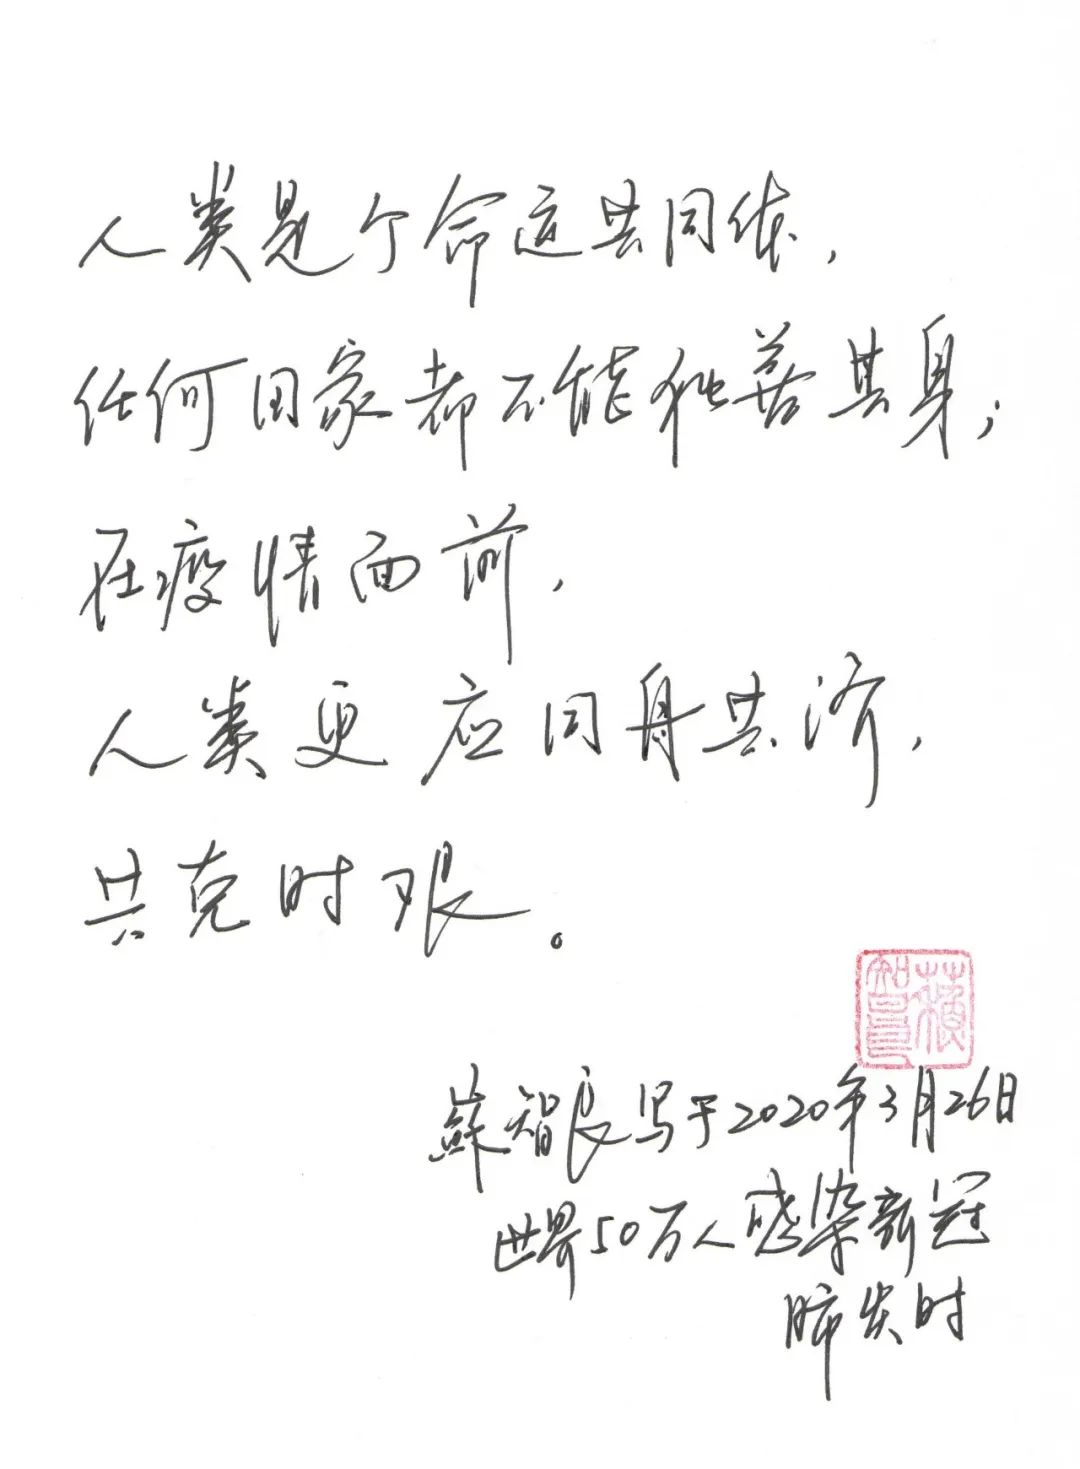 人类是个命运共同体，
任何国家都不能独善其身；
在疫情面前，
人类更应同舟共济，
共克时艰。
蘇智良
蘇智良写于2020年3月26日
世界50万人感染新冠
肺炎时